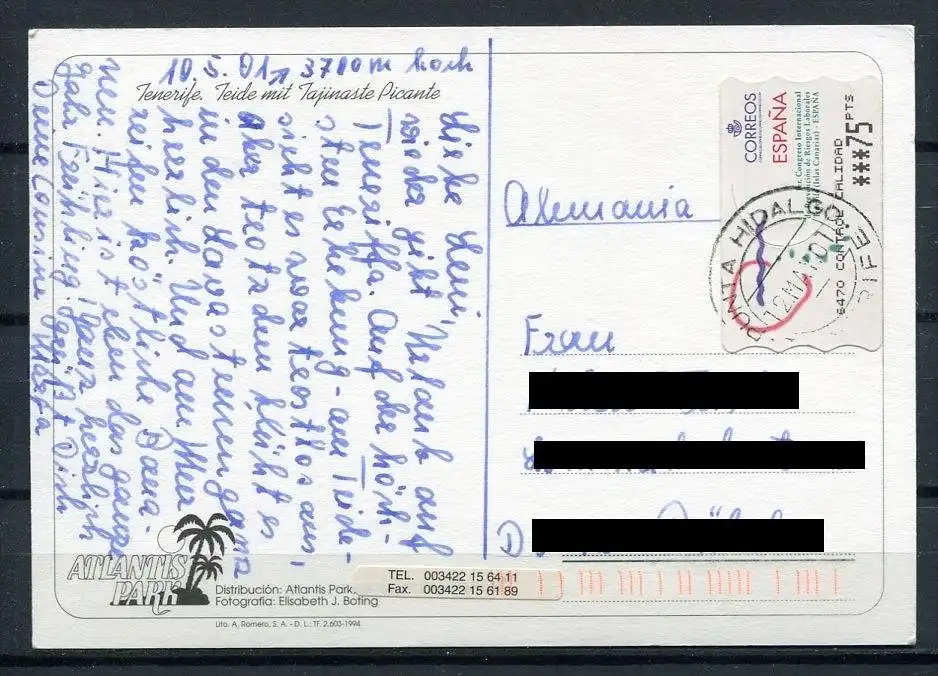 10.5.01, 3700m hoch
Tenerife. Teide mit Tajinaste Picante
Liebe Henni,
wieder gibt Urlaub auf
Teneriffa. Auf der höch-
sten Erhebung - am Teide -
sieht es zwar trostlos aus,
aber trotzdem blüht es
in den Lavasteinen ganz
herrlich. Und am Meer
reifen köstliche Bana-
nen. Hier ist eben das ganze
Jahr Frühling! Ganz herzlich
grüßt Dich
Deine Cousine
ATLANTIS
PARK
Distribución: Atlantis Park.
Fotografía: Elisabeth J. Boting
Lito. A. Romero, S. A. - D. L.: TF. 2.603-1994
TEL. 003422 15 64 11
Fax. 003422 15 61 89
CORREOS
ESPAÑA
Congreso Internacional
Prevención de Riesgos Laborales
(Islas Canarias) - ESPAÑA
6470 CONTROL CALIDAD
***75 PTS
PUNTA HIDALGO
12 MAY 01
Alemania
Frau
D